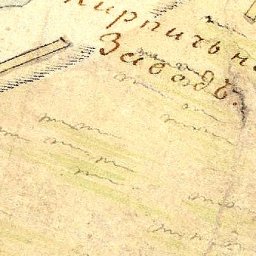 Кирпичьн
Заводъ.